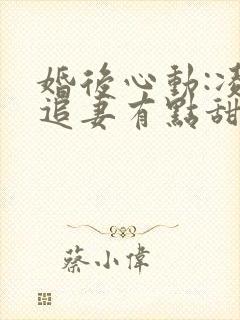 婚後心動:凌
追妻有點甜
蔡小偉